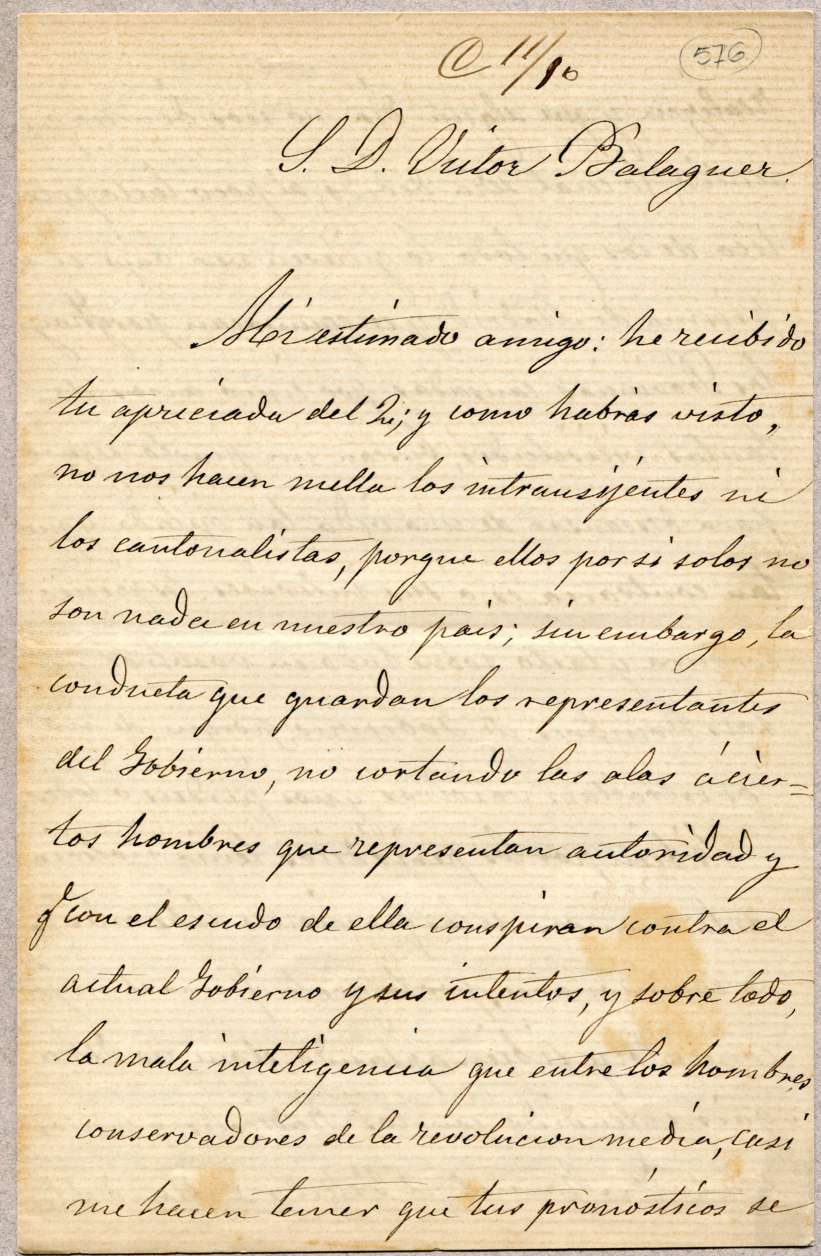 C 11/10
576
S. D. Victor Balaguer.
Mi estimado amigo: he recibido
tu apreciada del 2; y como habrás visto,
no nos hacen mella los intransijentes ni
los cantonalistas, porque ellos por si solos no
son nada en nuestro pais; sin embargo, la
conducta que guardan los representantes
del Gobierno, no cortando las alas á cier=
tos hombres que representan autoridad y
q.e con el escudo de ella conspiran contra el
actual Gobierno y sus intentos, y sobre todo,
la mala inteligencia que entre los hombres
conservadores de la revolucion media, casi
me hacen temer que tus pronósticos se